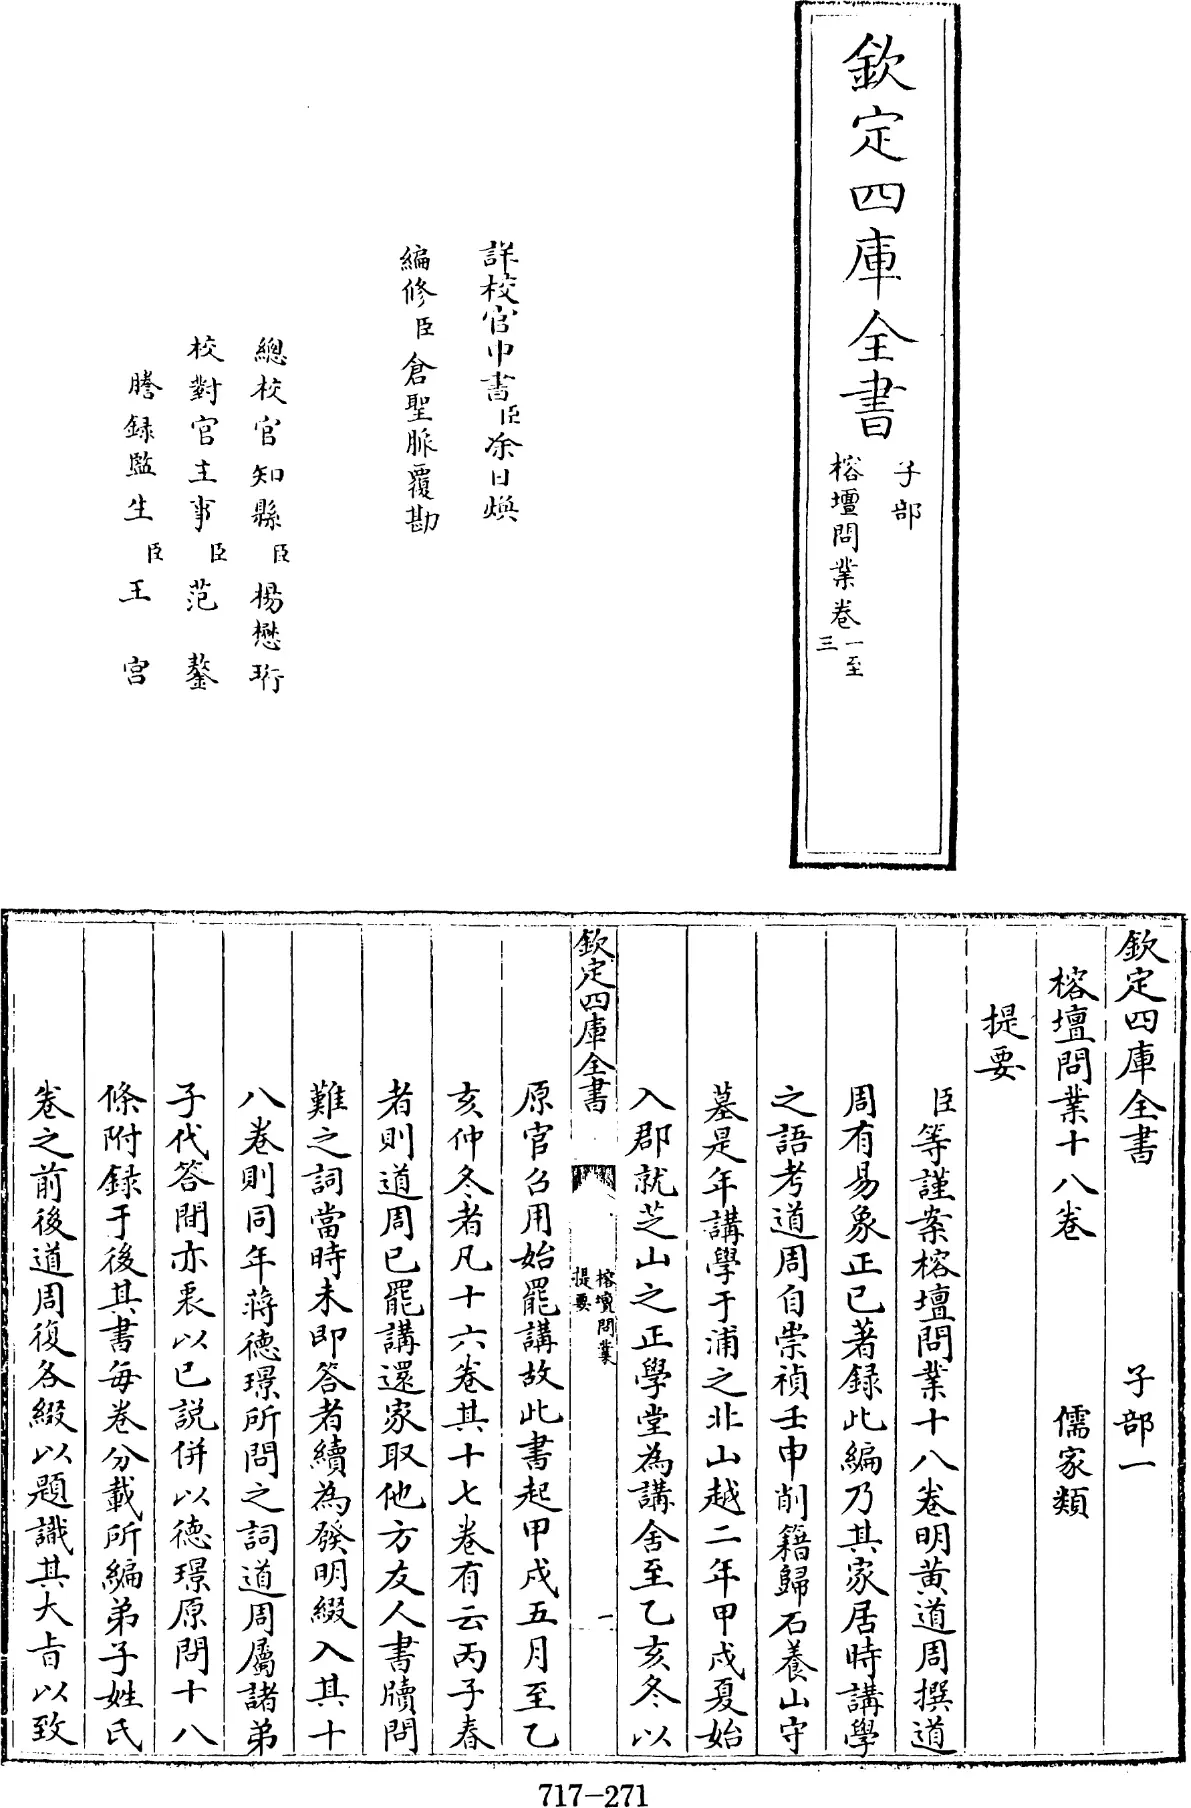 欽定四庫全書
子部
榕壇問業卷一至三
詳校官中書臣涂日煥
編修臣倉聖脈覆勘
總校官知縣臣楊懋珩
校對官主事臣范鏊
謄錄監生臣王宫
欽定四庫全書 子部一
榕壇問業十八卷 儒家類
提要
臣等謹案榕壇問業十八卷明黄道周撰道
周有易象正已著録此編乃其家居時講學
之語考道周自崇禎壬申削籍歸石養山守
墓是年講學于浦之北山越二年甲戌夏始
入郡就芝山之正學堂為講舍至乙亥冬以
欽定四庫全書 榕壇問業提要 一
原官召用始罷講故此書起甲戌五月至乙
亥仲冬者凡十六卷其十七卷有云丙子春
者則道周已罷講還家取他方友人書牘問
難之詞當時未即答者續為發明綴入其十
八卷則同年蔣德璟所問之詞道周屬諸弟
子代答間亦裒以已說併以德璟原問十八
條附録于後其書每卷分載所編弟子姓氏
卷之前後道周復各綴以題識其大旨以致
717-271